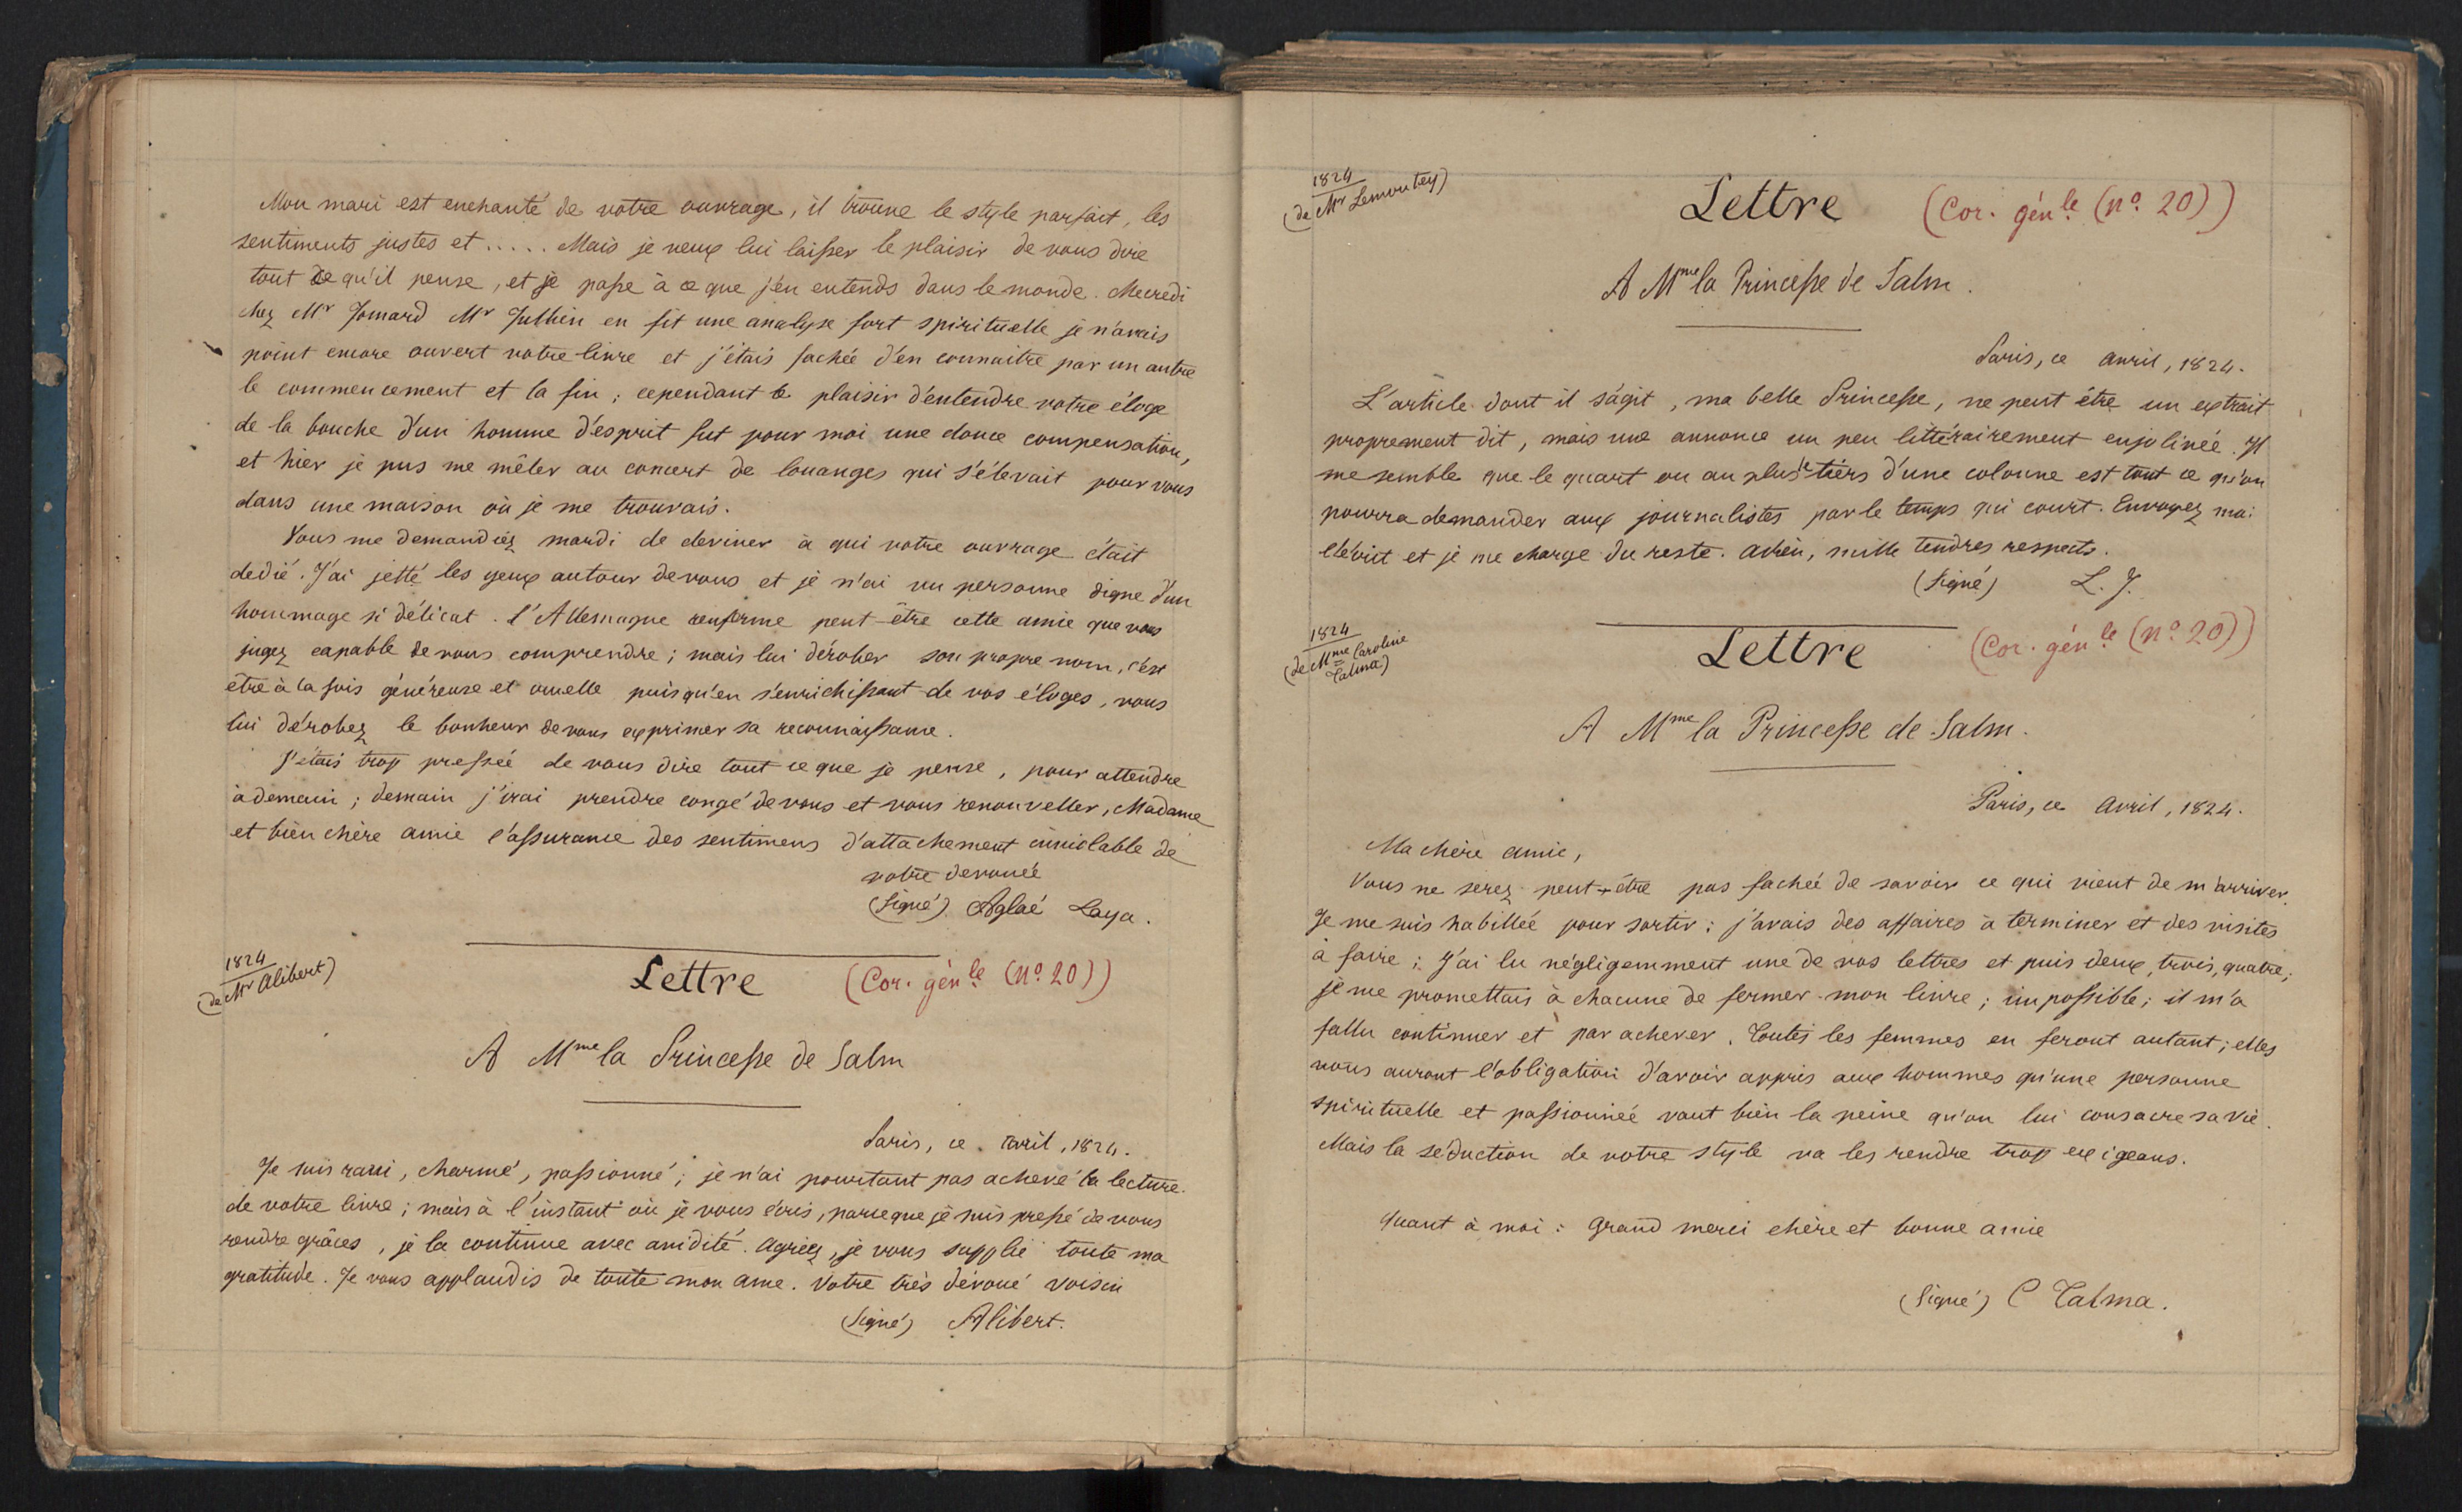 Mon mari est enchanté de votre ouvrage, il trouve le style parfait, les
sentiments justes et ..... Mais je veux lui laisser le plaisir de vous dire
tout ce qu'il pense, et je passe à ce que j'en entends dans le monde. Mecredi
chez Mr Jomard Mr Jullien en fit une analyse fort spirituelle je n'avais
point encore ouvert votre livre et j'étais fachée d'en connaitre par un autre
le commencement et la fin; cependant le plaisir d'entendre votre éloge
de la bouche d'un homme d'esprit fut pour moi une douce compensation,
et hier je pus me mêler au concert de louanges qui s'élevait pour vous
dans une maison où je me trouvais.
Vous me demandiez mardi de deviner à qui votre ouvrage était
dedié. J'ai jetté les yeux autour de vous et je n'ai vu personne digne d'un
hommage si délicat. L'Allemagne renferme peut-être cette amie que vous
jugez capable de vous comprendre; mais lui dérober son propre nom, c'est
etre à la fois généreuse et cruelle puisqu'en s'enrichissant de vos éloges, vous
lui dérobez le bonheur de vous exprimer sa reconnaissance.
J'étais trop pressée de vous dire tout ce que je pense, pour attendre
à demain; demain j'irai prendre congé de vous et vous renouveller, Madame
et bien chère amie l'assurance des sentimens d'attachement inviolable de
votre devouée
(Signé) Aglaé Laya.
1824
(de Mr Alibert)
Lettre (Cor. génle (no. 20))
A Mme la Princesse de Salm
Paris, ce avril, 1824.
Je suis ravi, charmé, passionné; je n'ai pourtant pas achevé la lecture
de votre livre; mais à l'instant où je vous écris, parceque je suis pressé de vous
rendre grâces, je la continue avec avidité. Agréez, je vous supplie toute ma
gratitude. Je vous applaudis de toute mon ame. Votre très dévoué voisin
(Signé) Alibert.
1824
(de Mr Lemontey)
Lettre (Cor. génle (no. 20))
A Mme la Princesse de Salm.
Paris, ce avril, 1824.
L'article dont il s'agit, ma belle Princesse, ne peut être un extrait
proprement dit, mais une annonce un peu littérairement enjolivée. Il
me semble que le quart ou au plus le tiers d'une colonne est tout ce qu'on
pourra demander aux journalistes par le temps qui court. Envoyez moi
cela et je me charge du reste. Adieu, mille tendres respects.
(Signé) L. J.
1824
(de Mme Caroline
Talma)
Lettre (Cor. génle (no. 20))
A Mme la Princesse de Salm.
Paris, ce avril, 1824.
Ma chère amie,
Vous ne serez peut-être pas fachée de savoir ce qui vient de m'arriver.
Je me suis habillée pour sortir: j'avais des affaires à terminer et des visites
à faire; j'ai lu négligemment une de vos lettres et puis deux, trois, quatre;
je me promettais à chacune de fermer mon livre; impossible; il m'a
fallu continuer et par achever. Toutes les femmes en feront autant; elles
vous auront l'obligation d'avoir appris aux hommes qu'une personne
spirituelle et passionnée vaut bien la peine qu'on lui consacre sa vie.
Mais la séduction de votre style va les rendre trop exigeans.
Quant à moi: grand merci chère et bonne amie
(Signé) C Talma.